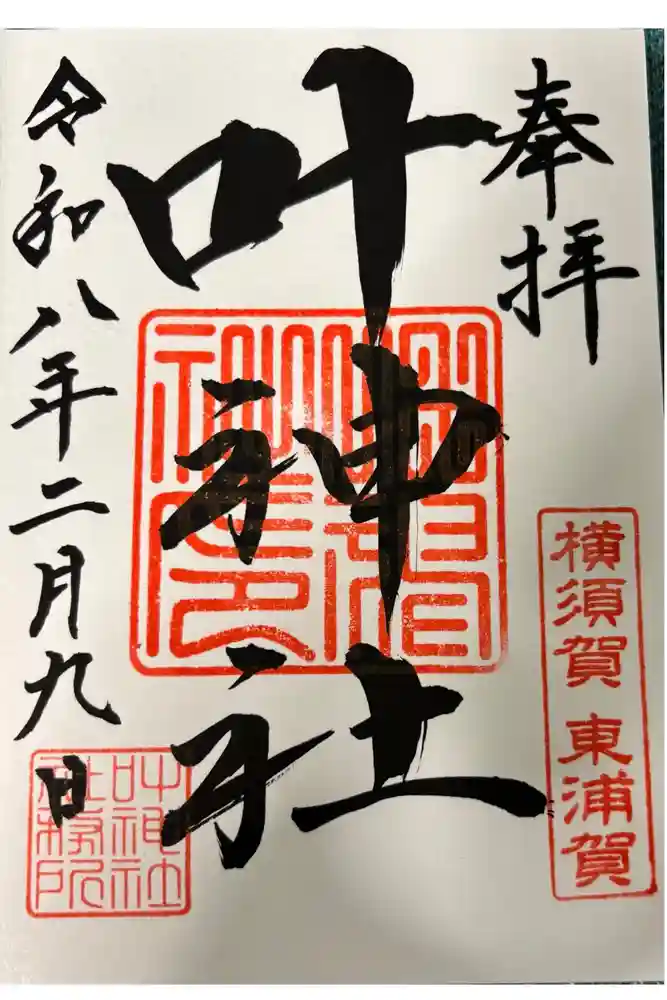 奉拝
横須賀 東浦賀
叶神社
令和八年二月九日
叶神社
社務所